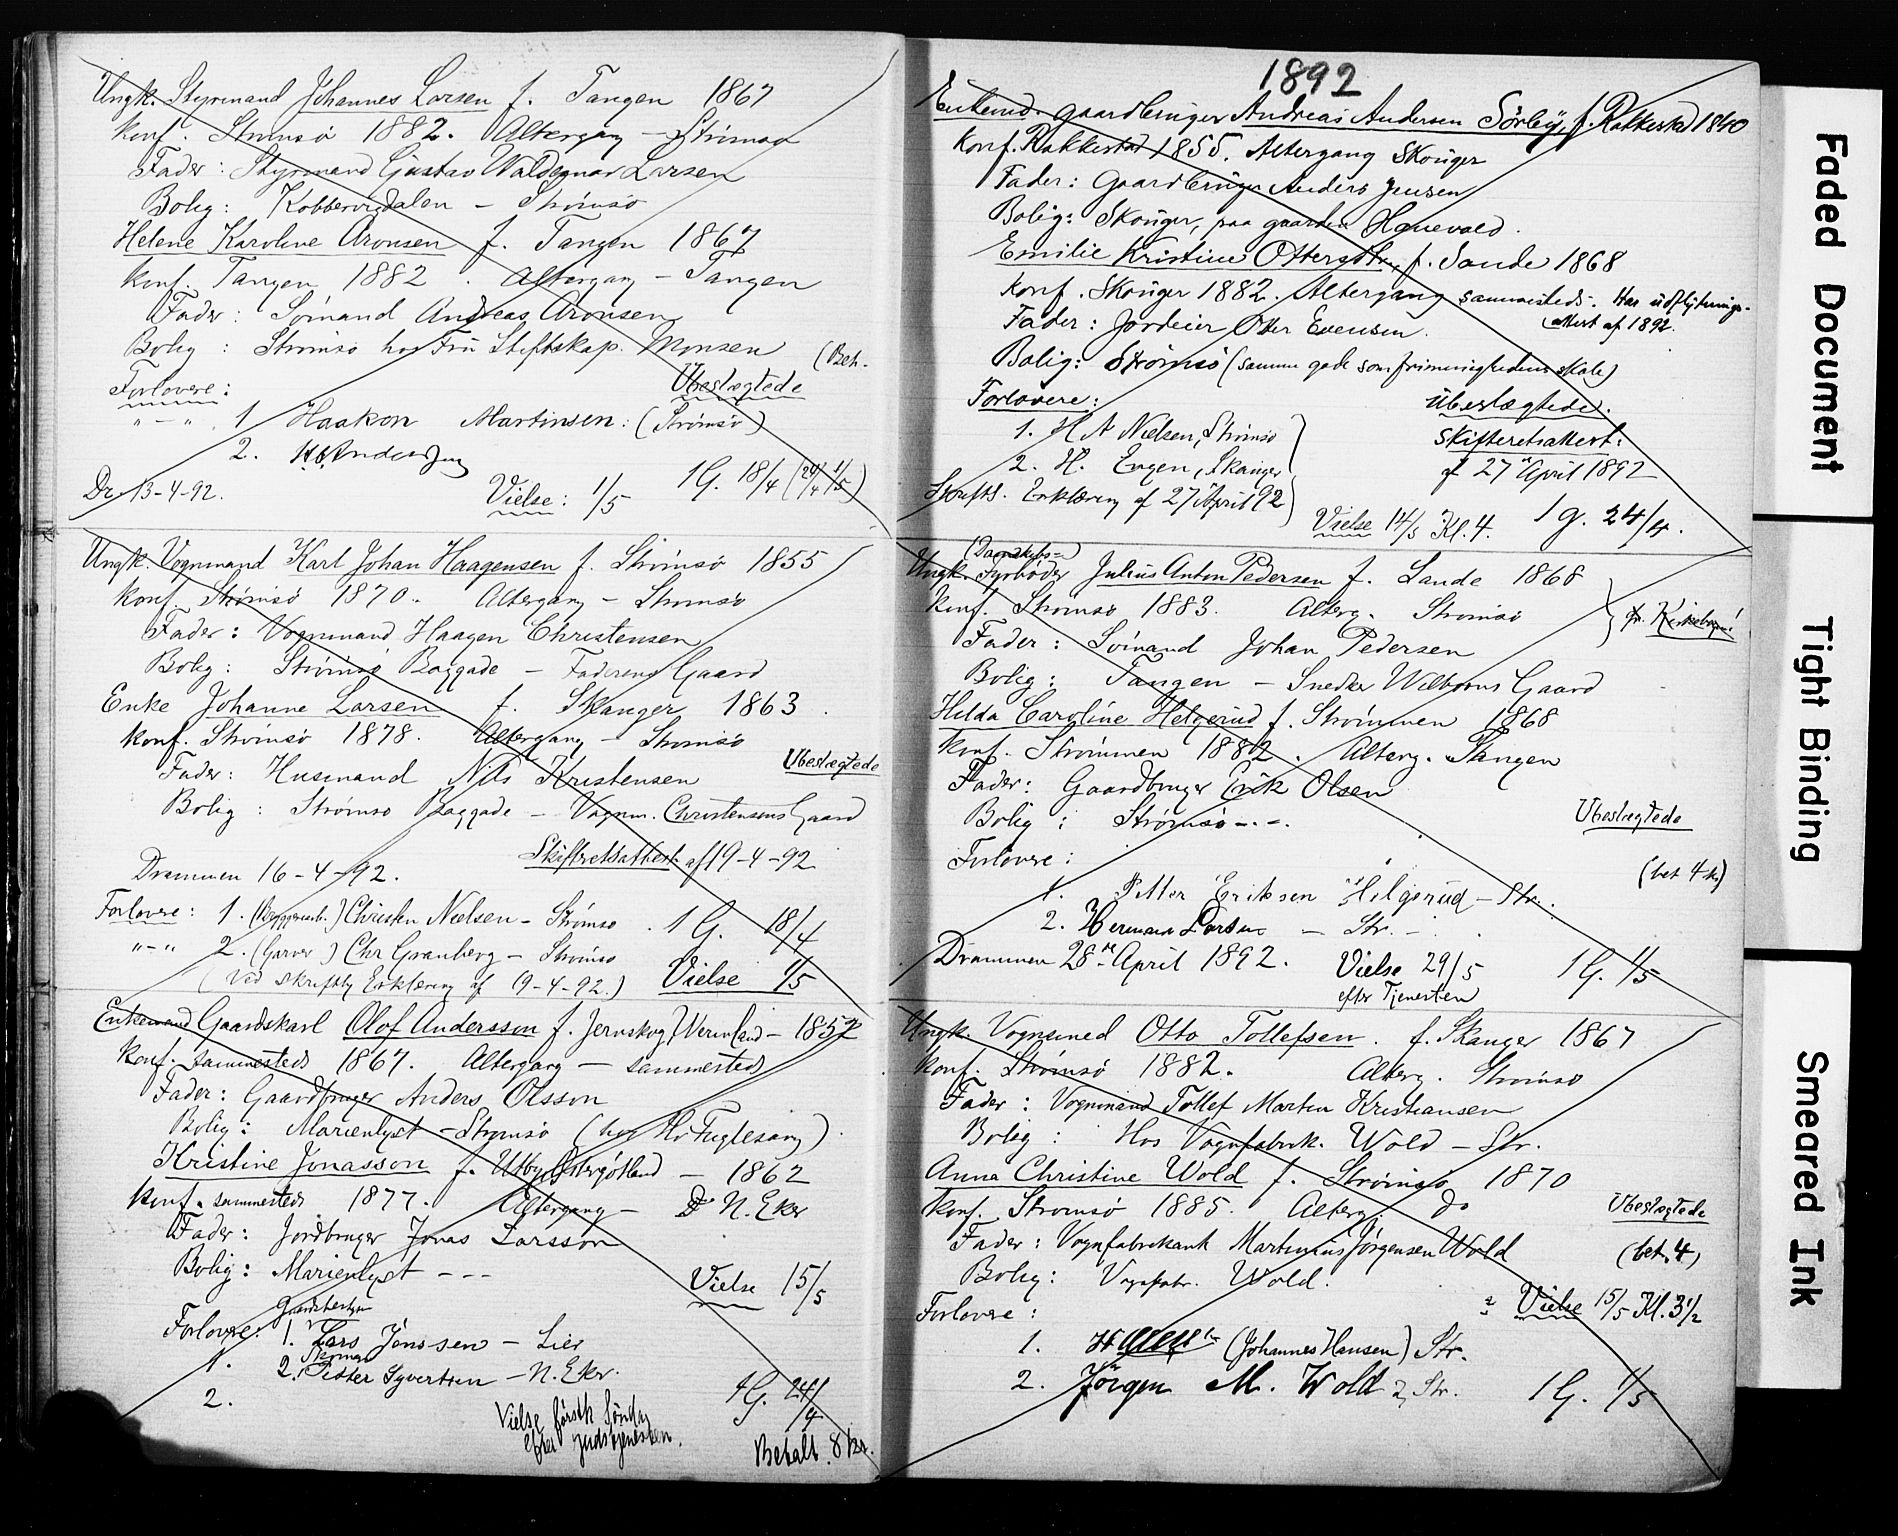 Ungk. Styrmand Johannes Larsen f. Tangen 1867
Konf. Strømsø 1882. Altergang - Strømsø
Fader: Styrmand Gustav Waldemar Larsen
Bolig: Kobbervigdalen - Strømsø
Helene Karoline Aronsen f. Tangen 1867
Konf. Tangen 1882. Altergang - Tangen
Fader: Sømand Andreas Aronsen
Bolig: Strømsø hos Fru Stiftskap. Monsen (Bet.
Forlovere: Ubeslægtede
" - " 1 Haakon Martinsen: (Strømsø)
2. Andersen
Dr. 13-4-92. Vielse: 1/5 1 G. 18/4 (24/4 1/5)
Ungk. Vognmand Karl Johan Haagensen f. Strømsø 1855
Konf. Strømsø 1870. Altergang - Strømsø
Fader: Vognmand Haagen Christensen
Bolig: Strømsø Baggade - Faderens Gaard
Enke Johanne Larsen f. Skauger 1863
Konf. Strømsø 1878. Altergang - Strømsø
Fader: Husmand Nils Kristensen Ubeslægtede
Bolig: Strømsø Baggade - Vognm. Christensens Gaard
Skifteretsattest af 19-4-92
Drammen 16-4-92.
Forlovere: 1. (Byggerarb.) Christen Nielsen - Strømsø. 1 G. 18/4
" - " 2. (Garver) Chr Granberg - Strømsø
(Ved skriftlig Erklæring af 19-4-92.) Vielse 1/5
Enkemand Gaardskarl Olof Andersson f. Jernskog, Wermland - 1852
Konf. sammesteds 1867. Altergang - sammesteds
Fader: Gaardbruger Anders Olsson
Bolig: Marienlyst - Strømsø (hos Hr Fuglesang).
Kristine Jonasson f. Utby, Østergötland - 1862
Konf. sammesteds 1877. Altergang - Do N. Eker
Fader: Jordbruger Jonas Larsson
Bolig: Marienlyst - - -
Vielse 15/5
Gaardbestyrer
Forlovere: 1. Lars Jonssen - Lier
1. Skomager
2. Petter Syvertsen - N. Eker.
2. 1 G. 24/4
Vielse første Søndag
efter Gudstjenesten.
Betalt. 8 kr.
1892
Enkemd. gaardbruger Andreas Andersen Sørby, f. Rakkestad 1840
Konf. Rakkestad 1855. Altergang Skouger
Fader: Gaardbruger Anders Jensen
Bolig: Skouger, paa gaarden Hanevold.
Emilie Kristine Ottersen, f. Sande 1868
Konf. Skouger 1882. Altergang sammesteds. Har udflytnings-
attest af 1892.
Fader: Jordeier Otter Evensen.
Bolig: Strømsø (samme gade som frimenighedens skole)
Forlovere: Ubeslægtede.
1. H N Nielsen, Strømsø Skifteretsattest:
2. H. Engen, Skauger af 27 April 1892
Skriftl. Erklæring af 27 April 92
Vielse 14/5 Kl. 4. 1 g. 24/4.
(Dampskibs=)
Ungk. Fyrbøder Julius Anton Pedersen f. Sande 1868
Konf. Strømsø 1883. Alterg. Strømsø
Fader: Sømand Johan Pedersen
Bolig: Tangen - Snedker Wilborns Gaard
Hilda Caroline Helgerud f. Strømmen 1868
Konf. Strømmen 1882. Alterg. Tangen
Fader: Gaardbruger Erik Olsen
Bolig: Strømsø - . - . Ubeslægtede
Forlovere: (bet 4 kr)
1. Petter Eriksen Helgerud - Str.
2. Herman Larsen - Str. -
Drammen 28de April 1892. Vielse 29/5 1 G. 1/5
efter Tjenesten
Ungk. Vognsmed Otto Tollefsen. f. Skauger 1867
Konf. Strømsø 1882. Alterg. Strømsø
Fader: Vognmand Tollef Martin Kristiansen
Bolig: Hos Vognfabrik. Wold - Str.
Anna Christine Wold f. Strømsø 1870
Konf. Strømsø 1885. Alterg. do Ubeslægtede
Fader: Vognfabrikant Martinius Jørgensen Wold (bet. 4)
Bolig: Vognfabr. Wold.
Forlovere: Vielse 15/5 Kl. 3 1/2
1. (Johannes Hansen) Str.
2. Jörgen M. Wold, Str. 1 G. 1/5
Faded Document
Tight Binding
Smeared Ink